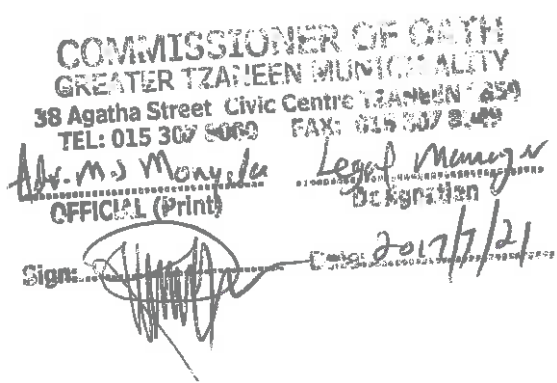 COMMISSIONER OF OATH
GREATER TZANEEN MUNICIPALITY
38 Agatha Street Civic Centre TZANEEN 850
TEL: 015 307 FAX: 015 307
Adv. MJ Legal Manager
OFFICIAL (Print) Designation
Sign: Date: 2017/7/21